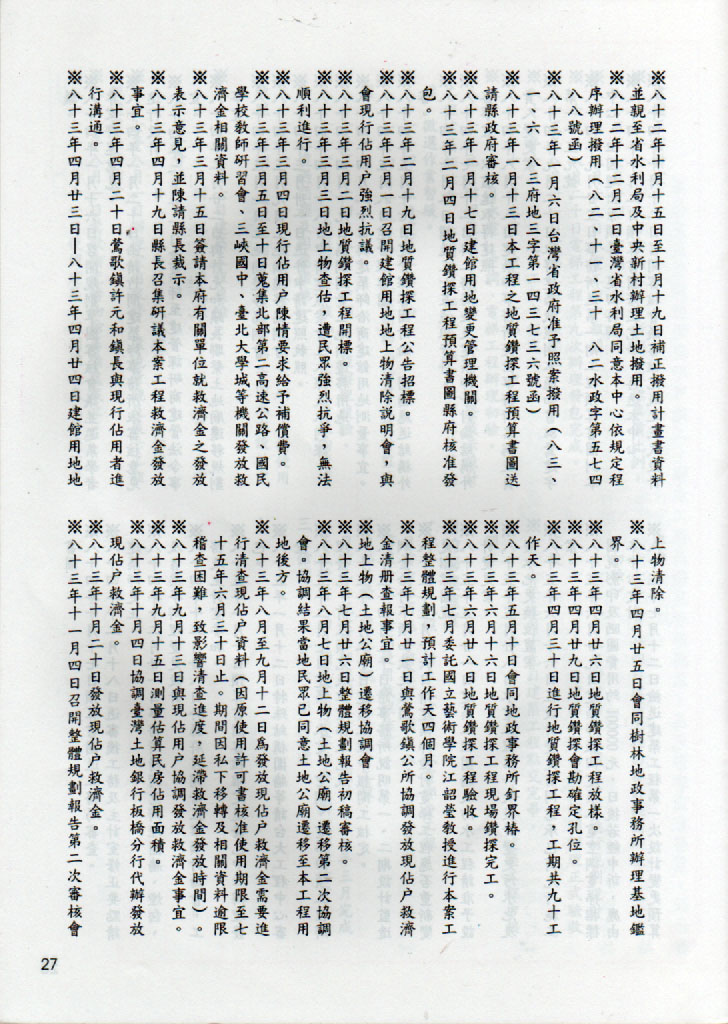 ※八十二年十月十五日至十月十九日補正撥用計畫書資料
並親至省水利局及中央新村辦理土地撥用。
※八十二年十二月二日臺灣省水利局同意本中心依規定程
序辦理撥用(八二、十一、三十 八二水政字第五七四
八八號函)
※八十三年一月六日台灣省政府准予照案撥用(八三、
一、六 八三府地三字第一四三七三六號函)
※八十三年一月十三日本工程之地質鑽探工程預算書圖送
請縣政府審核。
※八十三年一月十七日建館用地變更管理機關。
※八十三年二月四日地質鑽探工程預算書圖縣府核准發
包。
※八十三年二月十九日地質鑽探工程公告招標。
※八十三年三月一日召開建館用地地上物清除説明會,與
會現行佔用户強烈抗議。
※八十三年三月二日地質鑽探工程開標。
※八十三年三月三日地上物查估,遭民眾強烈抗爭,無法
順利進行。
※八十三年三月四日現行佔用户陳情要求給予補償費。
※八十三年三月五日至十日蒐集北部第二高速公路、國民
學校教師研習會、三峽國中、臺北大學城等機關發放救
濟金相關資料。
※八十三年三月十五日簽請本府有關單位就救濟金之發放
表示意見,並陳請縣長裁示。
※八十三年四月十九日縣長召集研議本案工程救濟金發放
事宜。
※八十三年四月二十日鶯歌鎮許元和鎮長與現行佔用者進
行溝通。
※八十三年四月廿三日—八十三年四月廿四日建館用地地
上物清除。
※八十三年四月廿五日會同樹林地政事務所辦理基地鑑
界。
※八十三年四月廿六日地質鑽探工程放樣。
※八十三年四月廿九日地質鑽探會勘確定孔位。
※八十三年四月三十日進行地質鑽探工程,工期共九十工
作天。
※八十三年五月十日會同地政事務所釘界樁。
※八十三年六月十六日地質鑽探工程現場鑽探完工。
※八十三年六月廿八日地質鑽探工程驗收。
※八十三年七月委託國立藝術學院江韶瑩教授進行本案工
程整體規劃,預計工作天四個月。
※八十三年七月廿一日與鶯歌鎮公所協調發放現佔户救濟
金清册查報事宜。
※地上物(土地公廟)遷移協調會
※八十三年七月廿六日整體規劃報告初稿審核。
※八十三年八月七日地上物(土地公廟)遷移第二次協調
會。協調結果當地民眾已同意土地公廟遷移至本工程用
地後方。
※八十三年八月至九月十二日為發放現佔户救濟金需要進
行清查現佔户資料(因原使用許可書核准使用期限至七
十五年六月三十日止。期間因私下移轉及相關資料逾限
稽查困難,致影響清查進度,延滯救濟金發放時間)。
※八十三年九月十三日與現佔用户協調發放救濟金事宜。
※八十三年九月十五日測量估算民房佔用面積。
※八十三年十月四日協調臺灣土地銀行板橋分行代辦發放
現佔户救濟金。
※八十三年十月二十日發放現佔户救濟金。
※八十三年十一月四日召開整體規劃報告第二次審核會
27